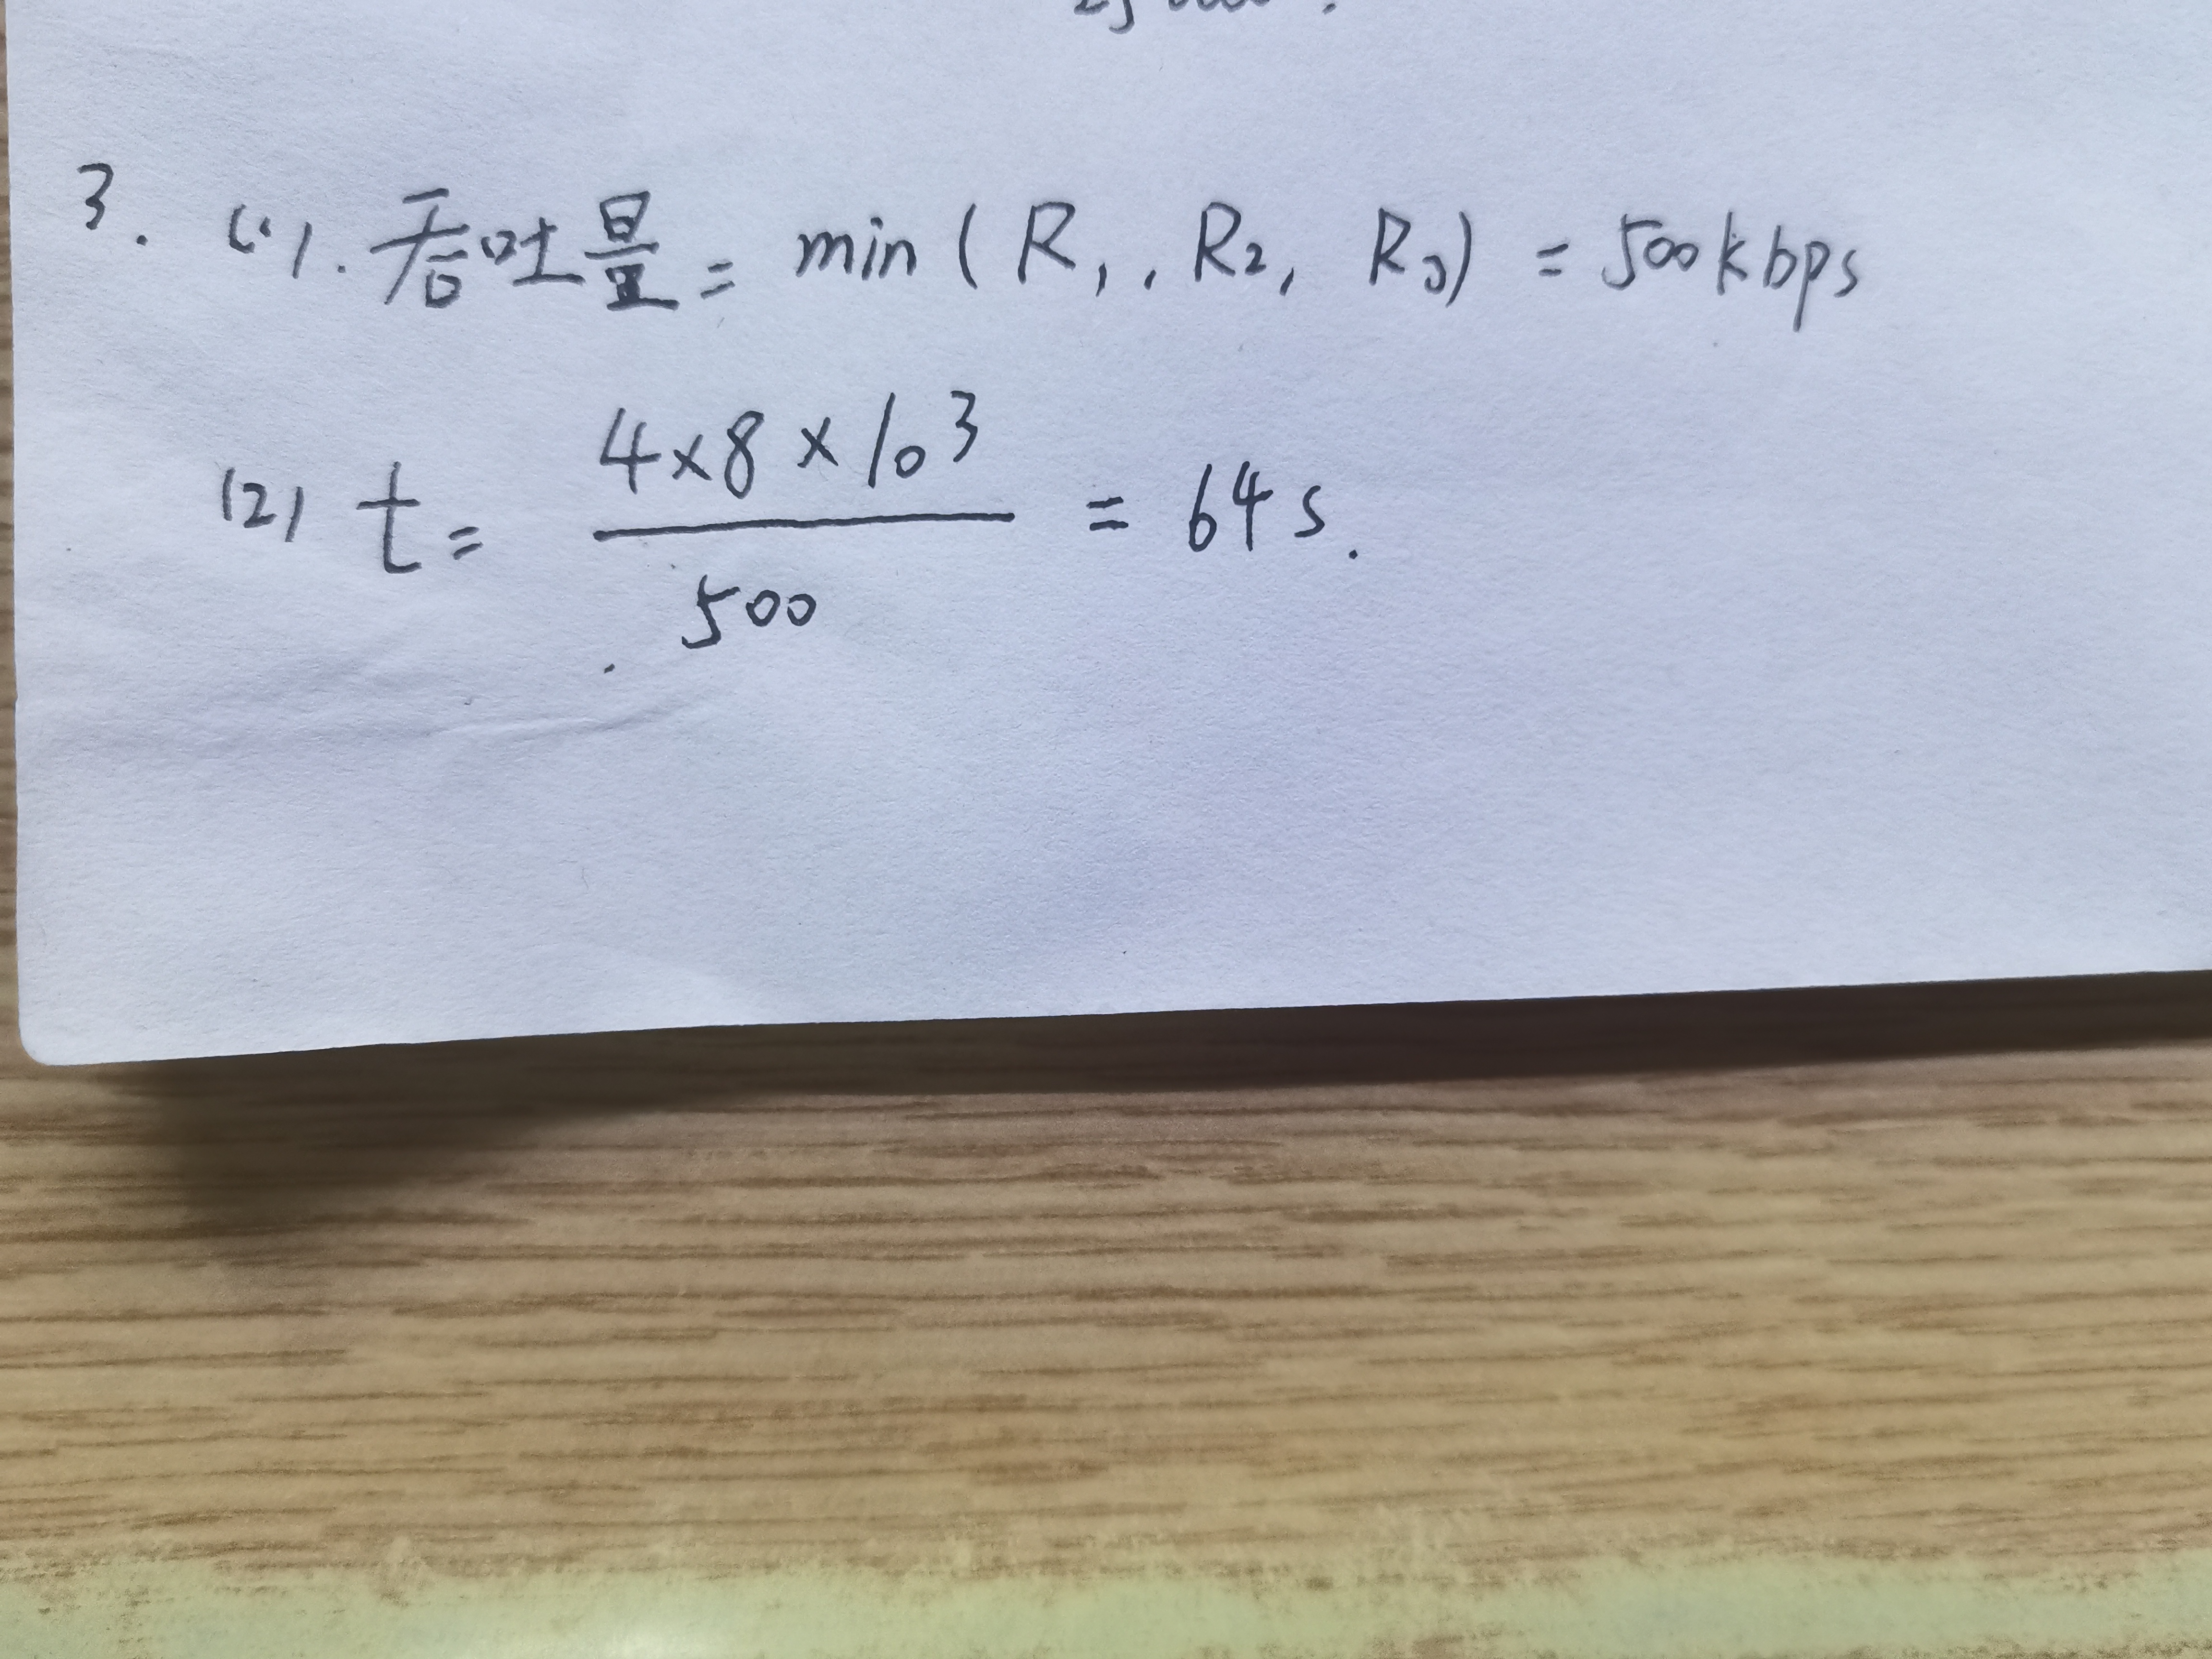 3. (1). 吞吐量 = min ( R₁, . R₂, R₃) = 500kbps
(2) t = \frac{4×8×10³}{500} = 64 s.